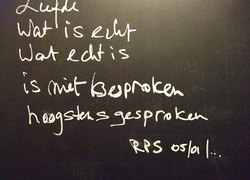 Liefde
Wat is echt
Wat echt is
is niet besproken
hoogstens gesproken
RPS 05/01/...